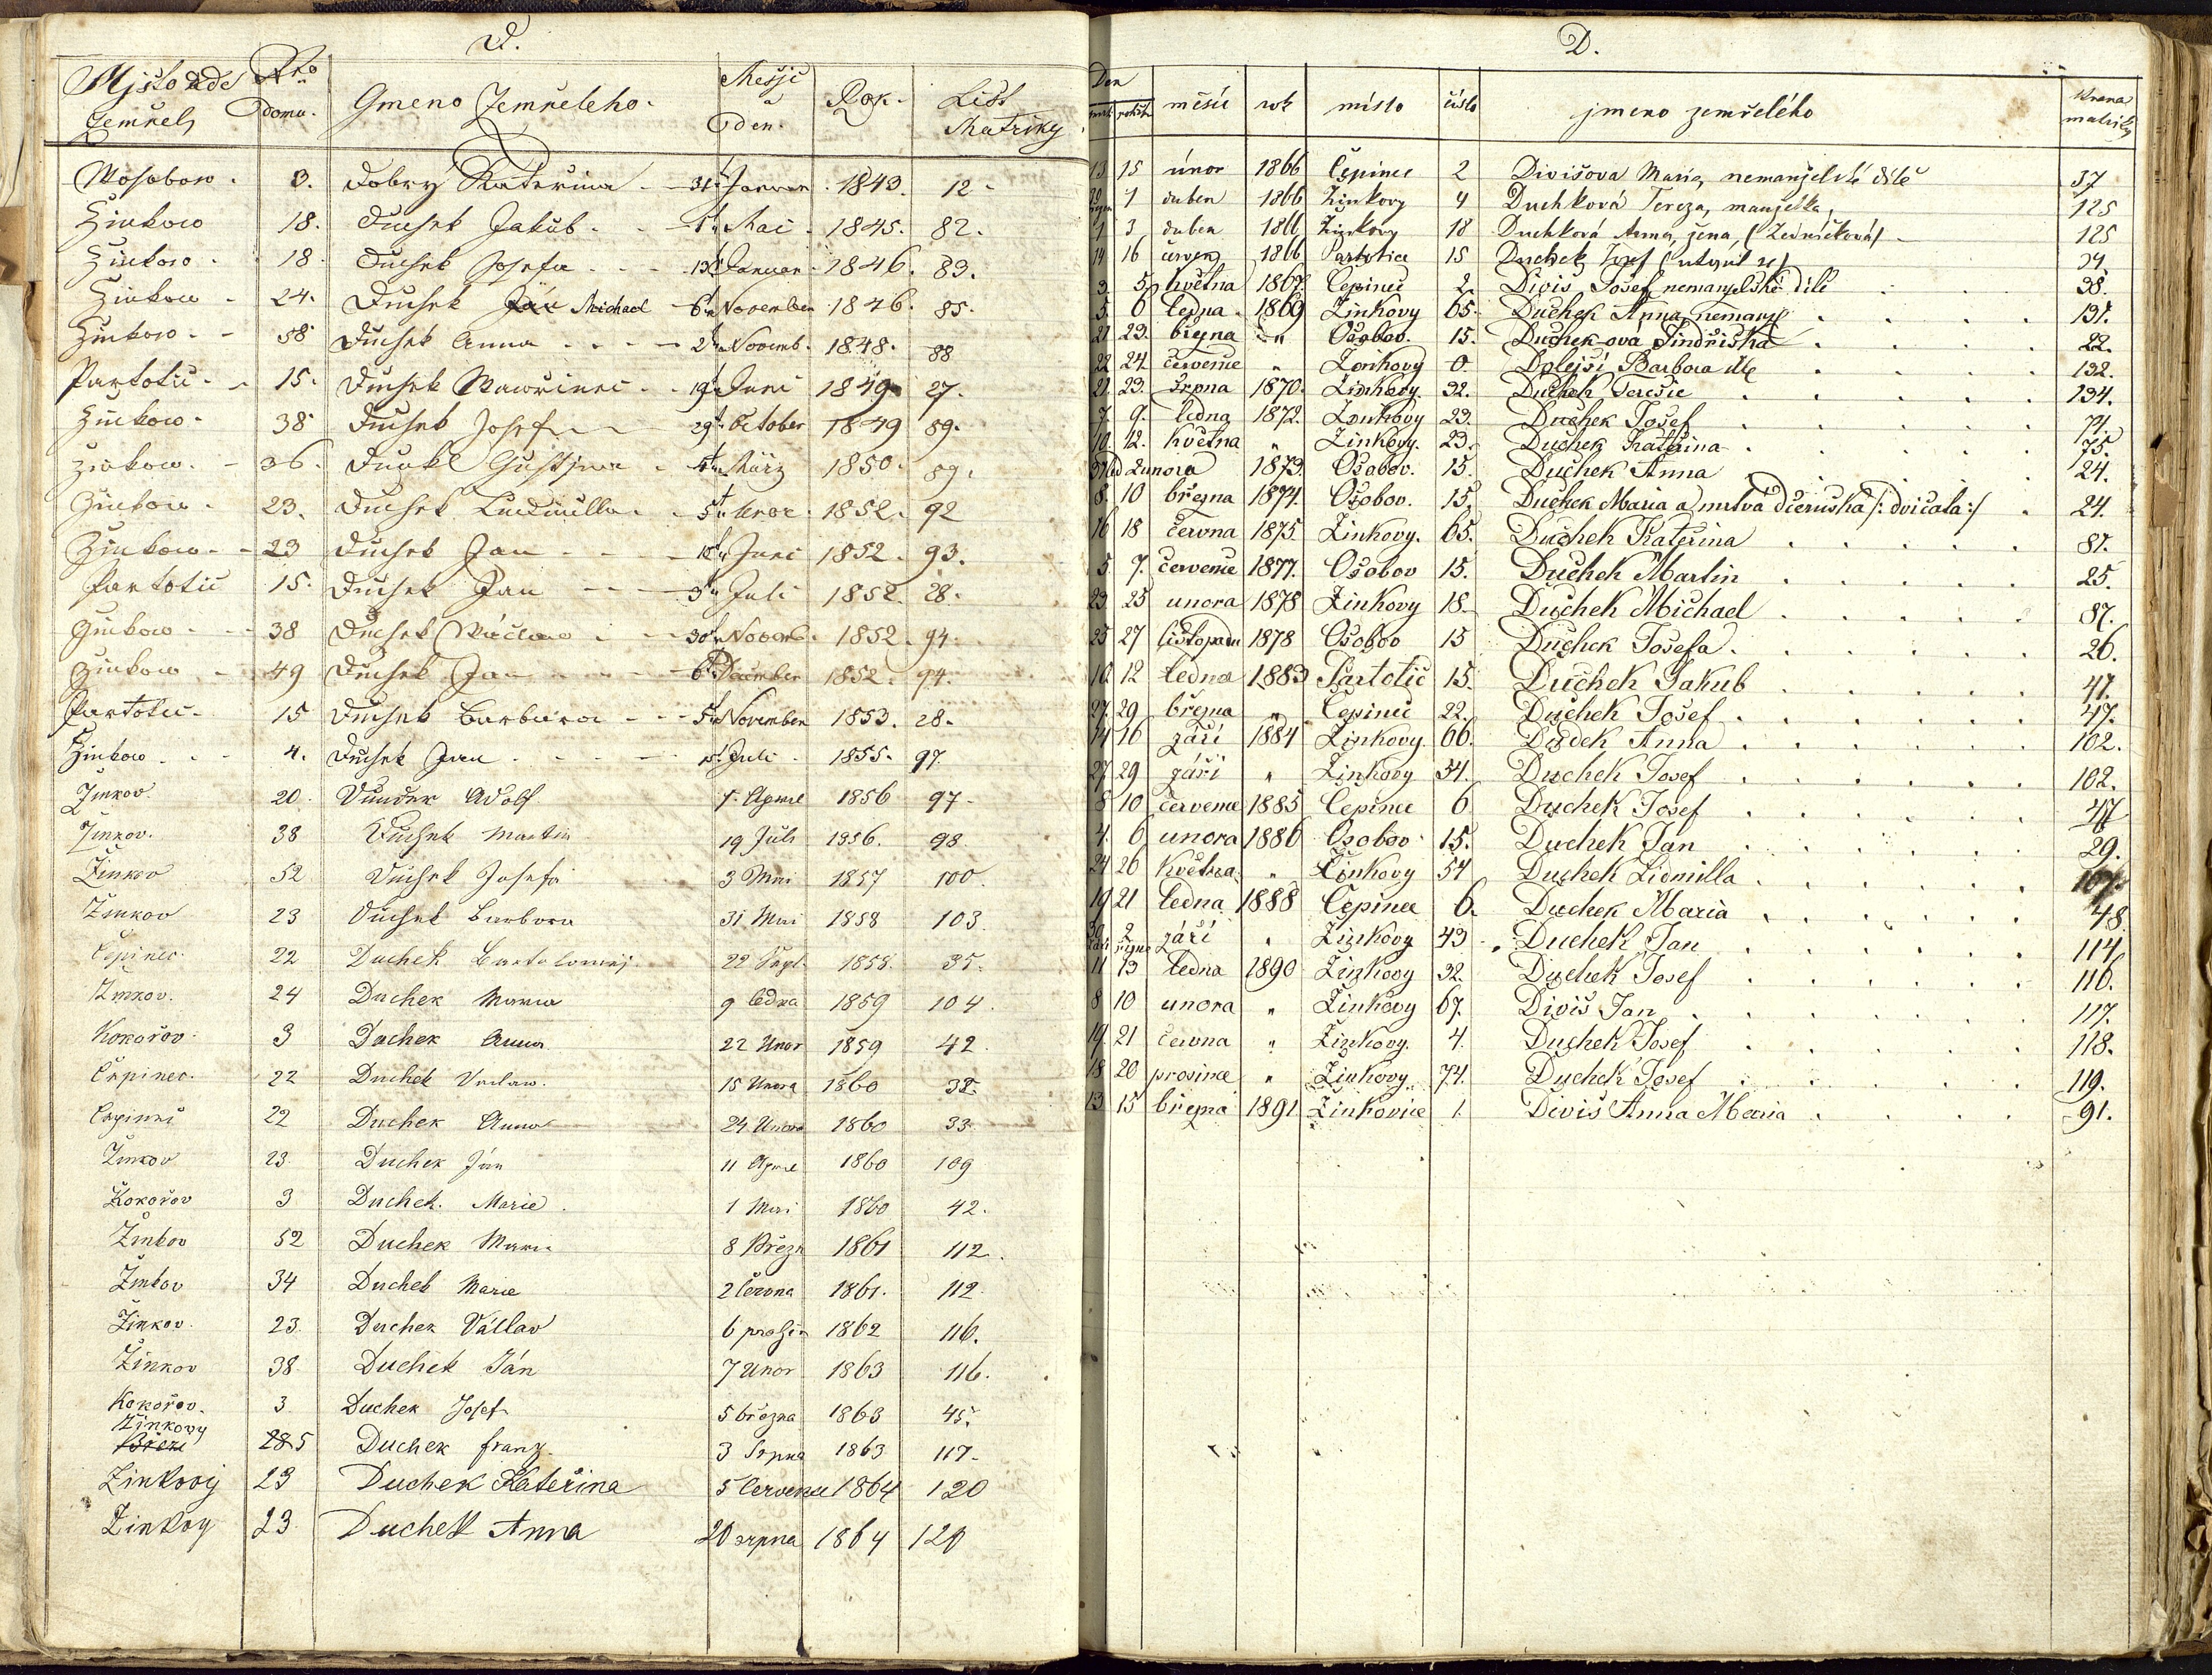 D.
Mjsto kde Nro Gmeno Zemřeleho. Měsjc Rok. List
Zemřel domu. a den. Matriky
Wosobow. 3. Dobrý Kateřina 31 Januar 1843. 12.
Žinkow 18. Duchek Jakub 1 Mai 1845. 82.
Žinkow 18. Duchek Josefa 13 Januar 1846. 83.
Žinkow 24. Duchek Jan Michael 6 November 1846. 85.
Žinkow 58 Duchek Anna 2 Novemb. 1848. 88
Partotic 15. Duchek Wawřinec 19 Juni 1849 27.
Žinkow 38 Duchek Josef 29 October 1849 89.
Žinkow 36. März 1850. 89.
Žinkow 23. Duchek Ludmilla 5 1852. 92
Žinkow 23 Duchek Jan Juni 1852. 93.
Partotic 15. Duchek Jan 3 Juli 1852. 28.
Žinkow 38 Duchek Wáclaw 30 Novemb. 1852. 94.
Žinkow 49 Duchek Jan 6 December 1852. 94.
Partotic 15 Duchek Barbara 5 November 1853. 28.
Žinkow 4. Duchek Jan Juli 1855. 97.
Žinkov 20. Adolf 1. Aprill 1856 97.
Žinkov. 38 Duchek Martin 19 Juli 1856. 98
Žinkov 52 Duchek Josefa 3 Mai 1857 100.
Žinkov 23 Duchek Barbora 31 Mai 1858 103.
Čepinec. 22 Duchek Bartolomej 22 Sept. 1858. 35.
Žinkov. 24 Duchek Maria 9 ledna 1859 104.
Kokořov 3 Duchek Anna 22 Unor 1859 42.
Čepinec. 22 Duchek Vaclav. 15 Unora 1860 32
Čepinec 22 Duchek Anna 24 Unora 1860 33
Žinkov 23 Duchek Ján 11 April 1860 109
Kokořov 3 Duchek. Marie. 1 Mai 1860 42.
Žinkov 52 Duchek Maria 8 Březn 1861 112.
Žinkov 34 Duchek Marie 2 Června 1861. 112.
Žinkov. 23. Duchek Václav 6 prosin 1862 116.
Žinkov 38. Duchek Ján 7 Unor 1863 116.
Kokořov. 3. Duchek Josef 5 března 1863 45.
Žinkovy
Březi 285 Duchek franz. 3 Srpna 1863 117.
Žinkovy 23 Duchek Kateřina 5 Července 1864 120
Žinkoy 23. Duchek Anna 20 srpna 1864 120
D.
Den měsíc rok místo číslo jmeno zemřelého
matriky
13 15 únor 1866 Čepinec 2 Divišova Maria, nemanželské dítě 37
1 duben 1866 Žinkovy 4 Duchková Tereza, manželka, 125
1 3 duben 1866 Žinkovy 18 Duchková Anna, žena, (Zedníčková) 125
14 16 červen 1866 Partotice 15 Duchek Josef (utopil se) 34
3. 5 května 1867. Čepinec 2. Diviš Josef nemanželské dítě 38.
5. 6 ledna 1869 Žinkovy 65. Duchek Anna nemanž. 131.
21 23. března " Osobov. 15. Duchek-ova Jindřiška 22.
22 24. července " Žinkovy 0. Dolejší Barbora 132.
21. 23. Srpna 1870. Žinkovy. 32. Duchek Terezie 134.
7. 9. ledna 1872. Žinkovy 23. Duchek Josef 74.
10. 12. května " Žinkovy. 23. Duchek Kateřina 75.
31 led 2 unora 1873. Osobov. 15. Duchek Anna 24.
8. 10 března 1874. Osobov. 15. Duchek Maria a mrtvá dceruška /: dvičata :/ 24.
16 18 června 1875. Žinkovy. 65. Duchek Kateřina 81.
5. 7. července 1877. Osobov 15. Duchek Martin 25.
23. 25 unora 1878 Žinkovy 18. Duchek Michael 87.
25 27 listopadu 1878 Osobov 15 Duchek Josefa. 26.
10. 12 ledna 1883 Partotic 15. Duchek Jakub 47.
27. 29 března " Čepinec 22. Duchek Josef. 47.
14 16 září 1884 Žinkovy. 66. Dudek Anna 102.
27 29 září " Žinkovy 54. Duchek Josef 102.
8 10 července 1885 Čepinec 6 Duchek Josef 47
4. 6 unora 1886 Osobov 15. Duchek Jan 29.
24 26 Května " Žinkovy 54 Duchek Lidmilla 107.
19 21 ledna 1888 Čepinec 6. Duchek Maria 48
30 září 2 října září " Žinkovy 43 Duchek Jan 114.
11 13 ledna 1890 Žinkovy 32. Duchek Josef 116.
8 10 unora " Žinkovy 67. Diviš Jan 117.
19. 21 června " Žinkovy. 4. Duchek Josef 118.
18 20 prosince " Žinkovy. 74. Duchek Josef 119.
13 15 března 1891 Žinkovice 1. Diviš Anna Maria 91.